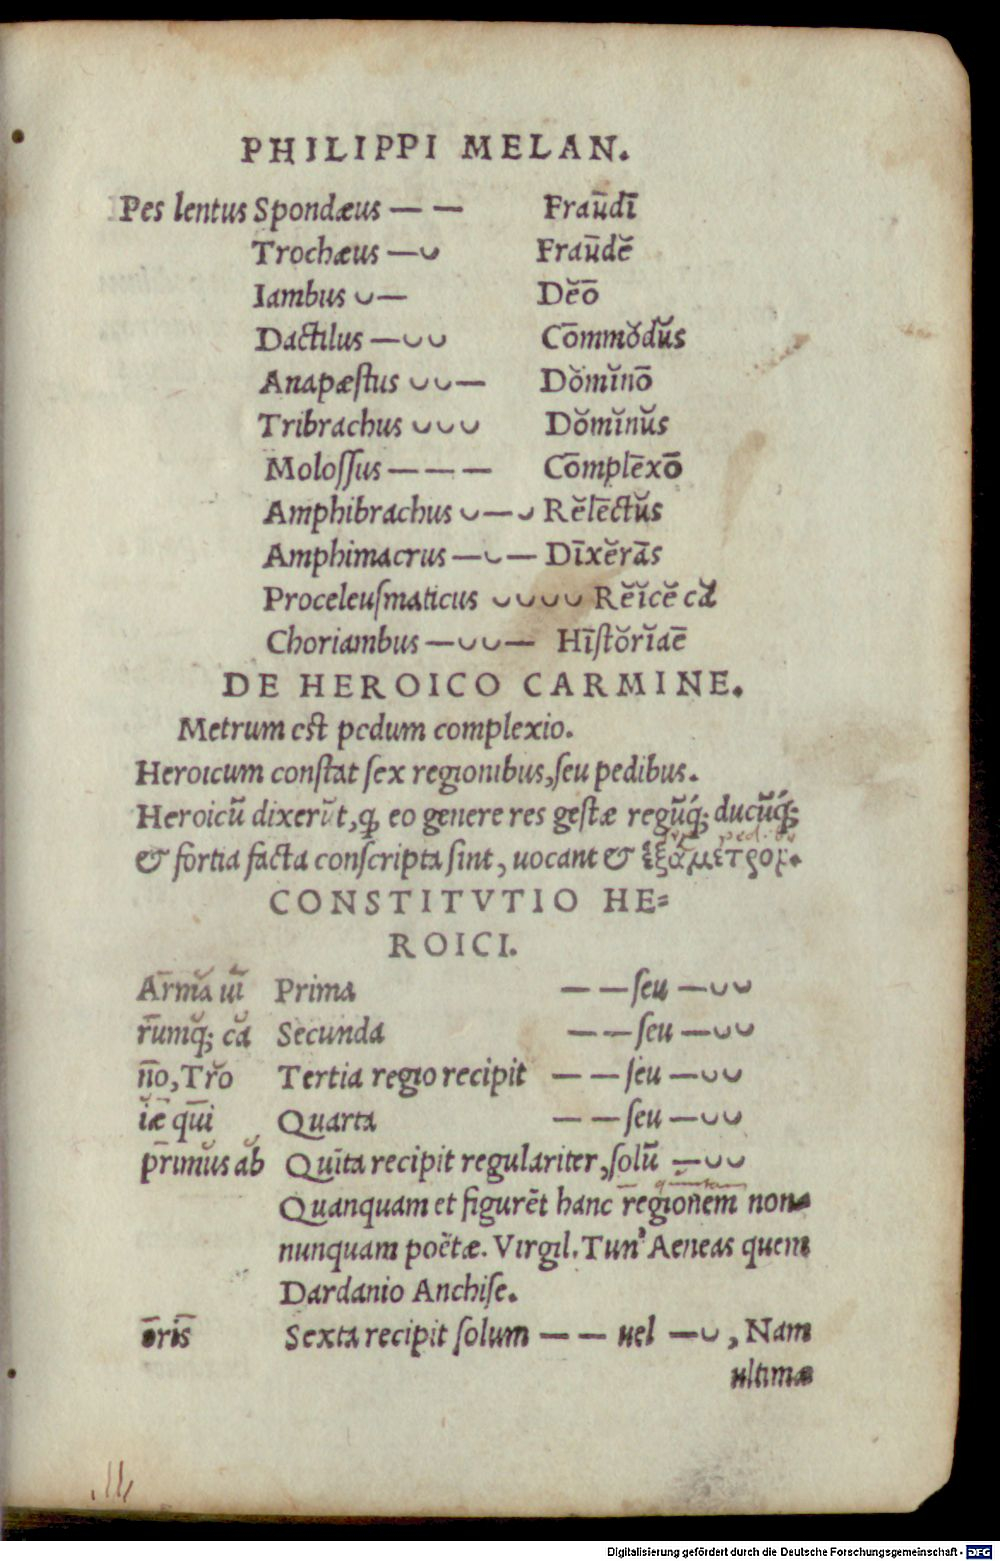 PHILIPPI MELAN.
Pes lentus Spondæus — — Frau̅dī
Trochæus —◡ Frau̅dĕ
Iambus ◡— Dĕō
Dactilus —◡◡ Cōmmŏdŭs
Anapæſtus ◡◡— Dŏmĭnō
Tribrachus ◡◡◡ Dŏmĭnŭs
Moloſſus — — — Cōmplēxō
Amphibrachus ◡—◡ Rĕlēctŭs
Amphimacrus —◡— Dīxĕrās
Proceleuſmaticus ◡◡◡◡ Rĕĭcĕ că
Choriambus —◡◡— Hīſtŏrĭae̅
DE HEROICO CARMINE.
Metrum est pedum complexio.
Heroicum conſtat ſex regionibus, ſeu pedibus.
Heroicū dixerūt, ꝙ eo genere res geſtæ regūq́; ducūq́;
& fortia facta conſcripta ſint, uocant & ἑξάμετρον.
CONSTITVTIO HE=
ROICI.
Ārmă uĭ Prima — — ſeu —◡◡
r̄umq̆; că Secunda — — ſeu —◡◡
n̄o, Tr̆o Tertia regio recipit — — ſeu —◡◡
ĭæ̅ qūi Quarta — — ſeu —◡◡
pr̄imŭs ăb Quīta recipit regulariter, ſolū —◡◡
quintam
Quanquam et figurēt hanc regionem non=
nunquam poëtæ. Virgil. Tun' Aeneas quem
Dardanio Anchiſe.
ōrīs Sexta recipit ſolum — — uel —◡, Nam
ultimæ
Digitalisierung gefördert durch die Deutsche Forschungsgemeinschaft - DFG